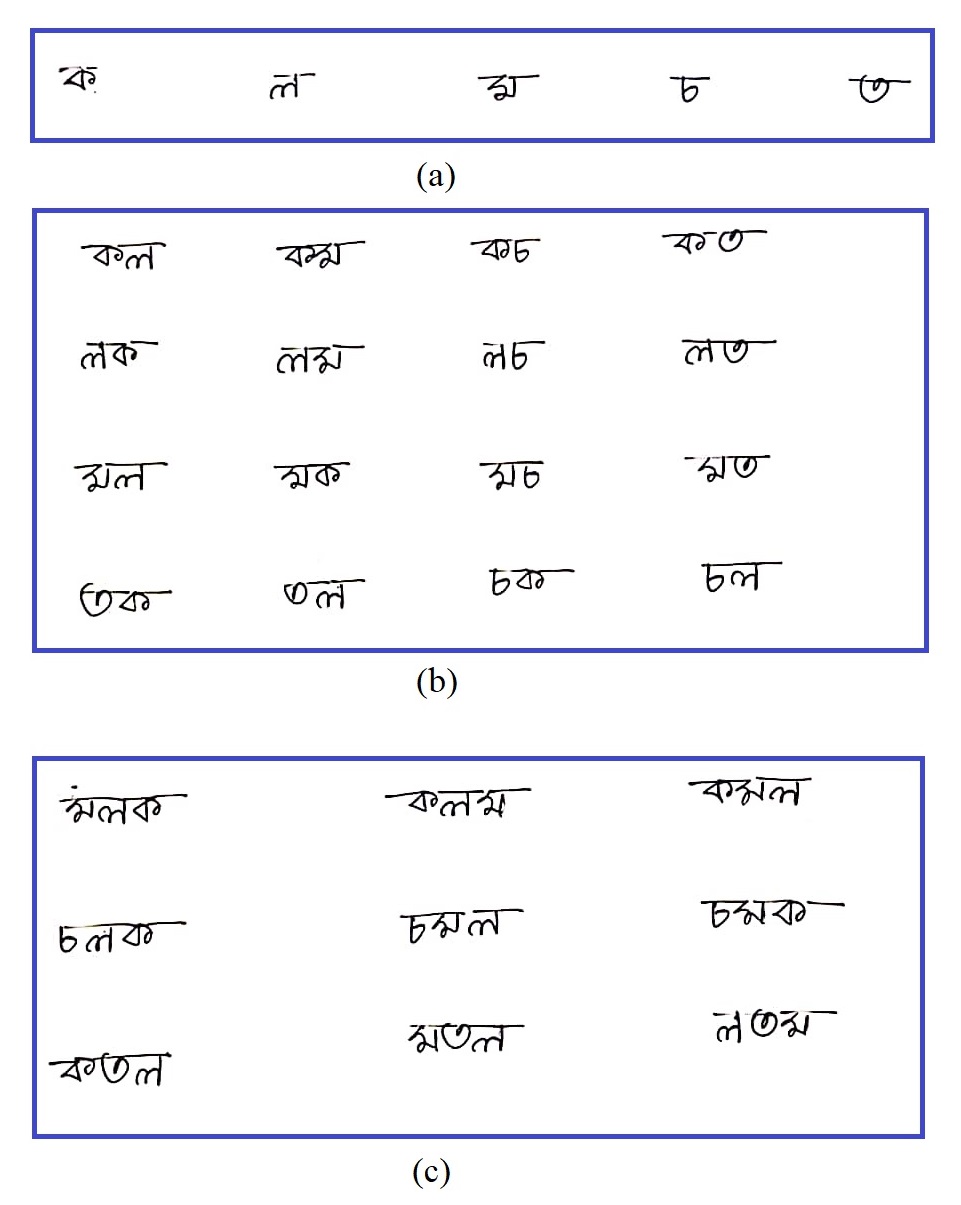 ক ল ম চ ত
(a)
কল কম কচ কত
লক লম লচ লত
মল মক মচ মত
তক তল চক চল
(b)
মলক কলম কমল
চলক চমল চমক
কতল মতল লতম
(c)